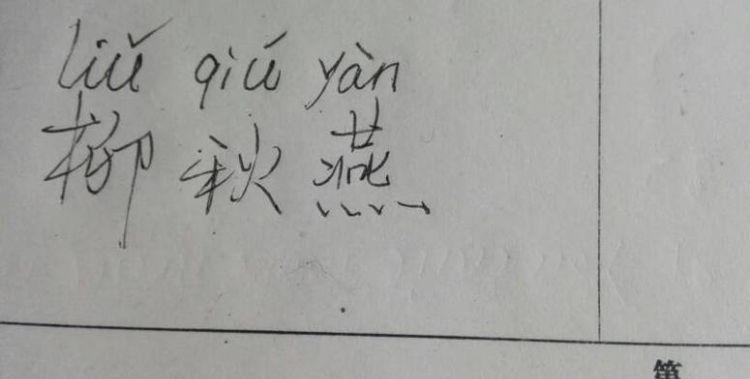 liǔ qiú yàn
柳秋燕
第